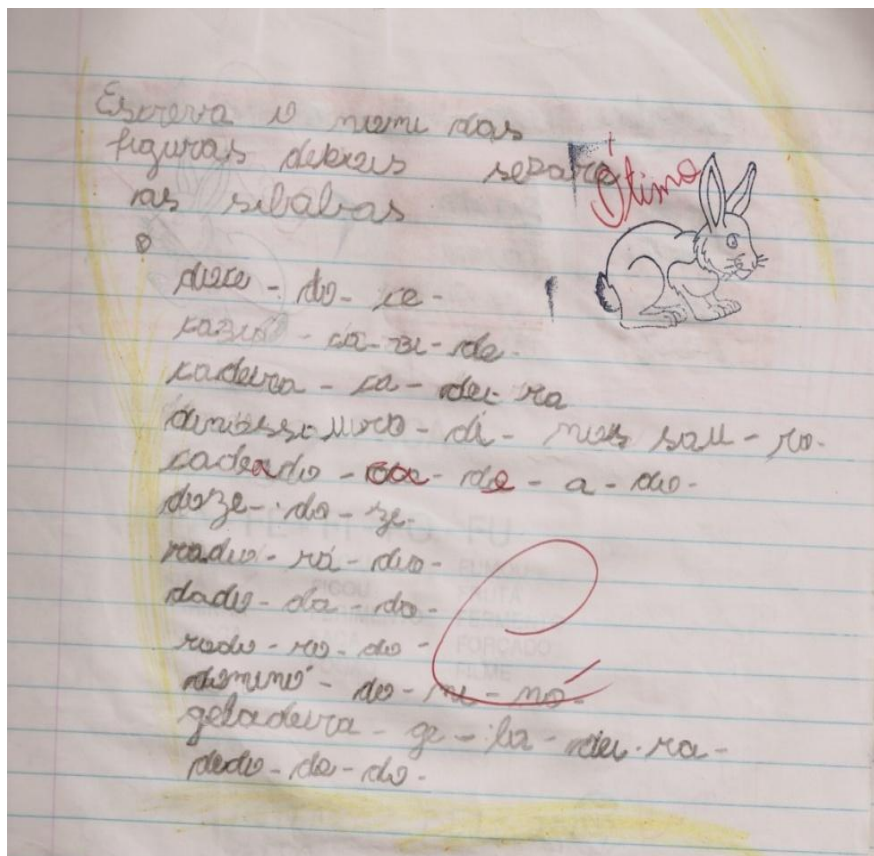 Escreva o nome das
figuras depois separe
as silabas
Ótimo
doce - do - ce -
ca - bi - de -
cadeira - ca - dei - ra
di - nos sau - ro -
cadeado - ca - de - a - do -
doze - do - ze -
radio - rá - dio -
dado - da - do -
rodo - ro - do -
dominó - do - mi - nó -
geladeira - ge - la - dei - ra -
dedo - de - do -